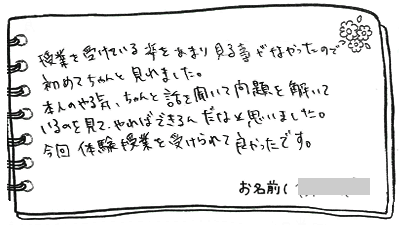 授業を受けている姿をあまり見る事がなかったので
初めてちゃんと見れました。
本人のやる気、ちゃんと話を聞いて問題を解いて
いるのを見て、やればできるんだなと思いました。
今回体験授業を受けられて良かったです。
お名前(